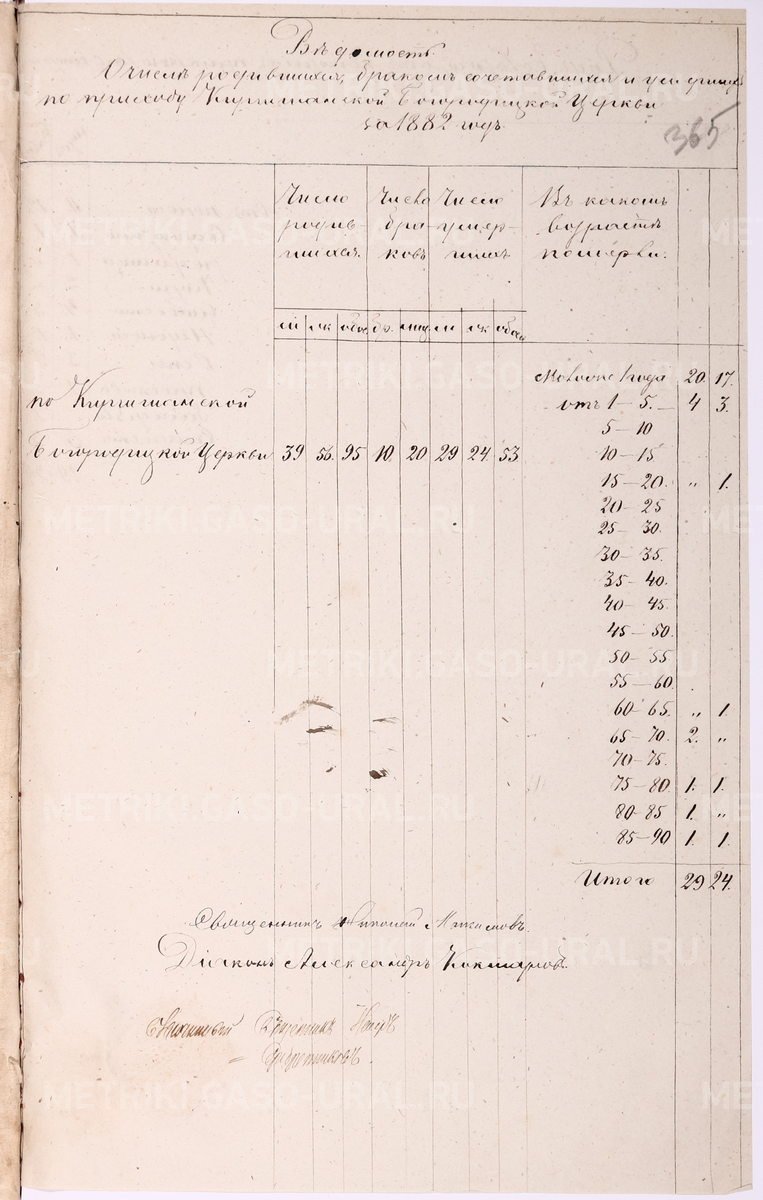 Вѣдомость
О числѣ родившихся, бракомъ сочетавшихся и умершихъ
по приходу Киргишанской Богородицкой Церкви
за 1882 годъ
365
Число родив-шихся. Число бра-ковъ Число умер-шихъ Въ какомъ возрастѣ померли:
м ж обое. бр. лиц. м ж обоего
Моложе 1 года 20. 17.
по Киргишанской
отъ 1 – 5. 4 3.
5 – 10
Богородицкой Церкви 39 56. 95 10. 20 29 24. 53 10 – 15
15 – 20. „ 1.
20 – 25
25 – 30.
30 – 35.
35 – 40.
40 – 45.
45 – 50.
50 – 55
55 – 60.
60 – 65. „ 1.
65 – 70. 2. „
70 – 75.
75 – 80. 1. 1.
80 – 85 1. „
85 – 90 1. 1.
Итого 29 24.
Священникъ Николай Максимовъ.
Діаконъ Александръ Кокшаровъ.
METRIKI.GASO-URAL.RU